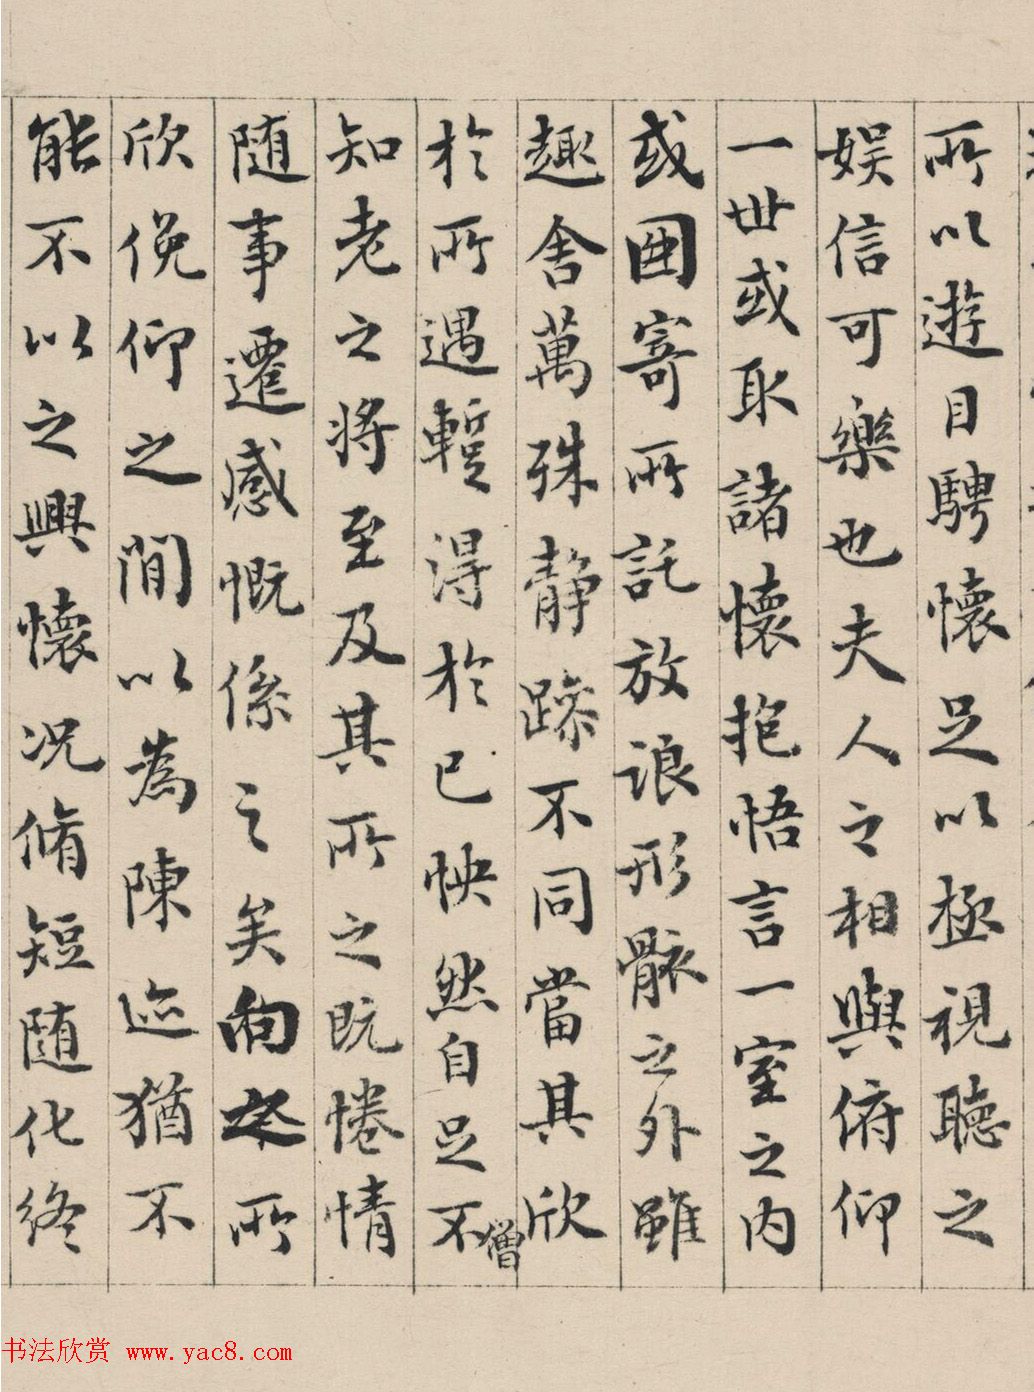 所以遊目騁懷足以極視聽之
娱信可樂也夫人之相與俯仰
一世或取諸懷抱悟言一室之内
或因寄所託放浪形骸之外雖
趣舍萬殊静躁不同當其欣
於所遇蹔得於己怏然自足不
僧
知老之将至及其所之既惓情
随事遷感慨係之矣向之所
欣俛仰之閒以為陳迹猶不
能不以之興懷况脩短随化終
书法欣赏 www.yac8.com